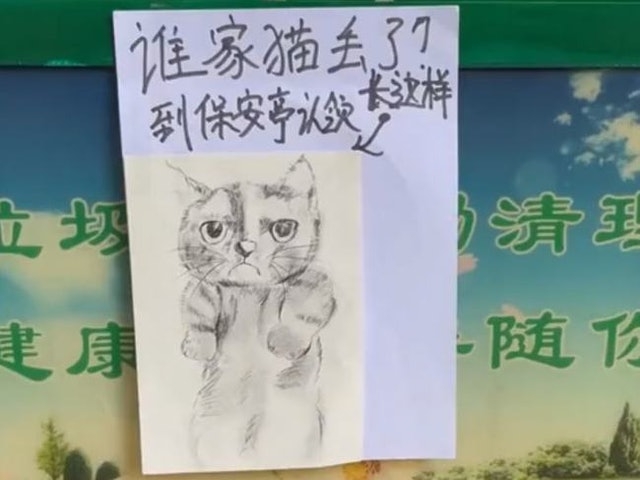 谁家猫丢了?
长这样
到保安亭认领
垃圾
勤清理
健康
随你